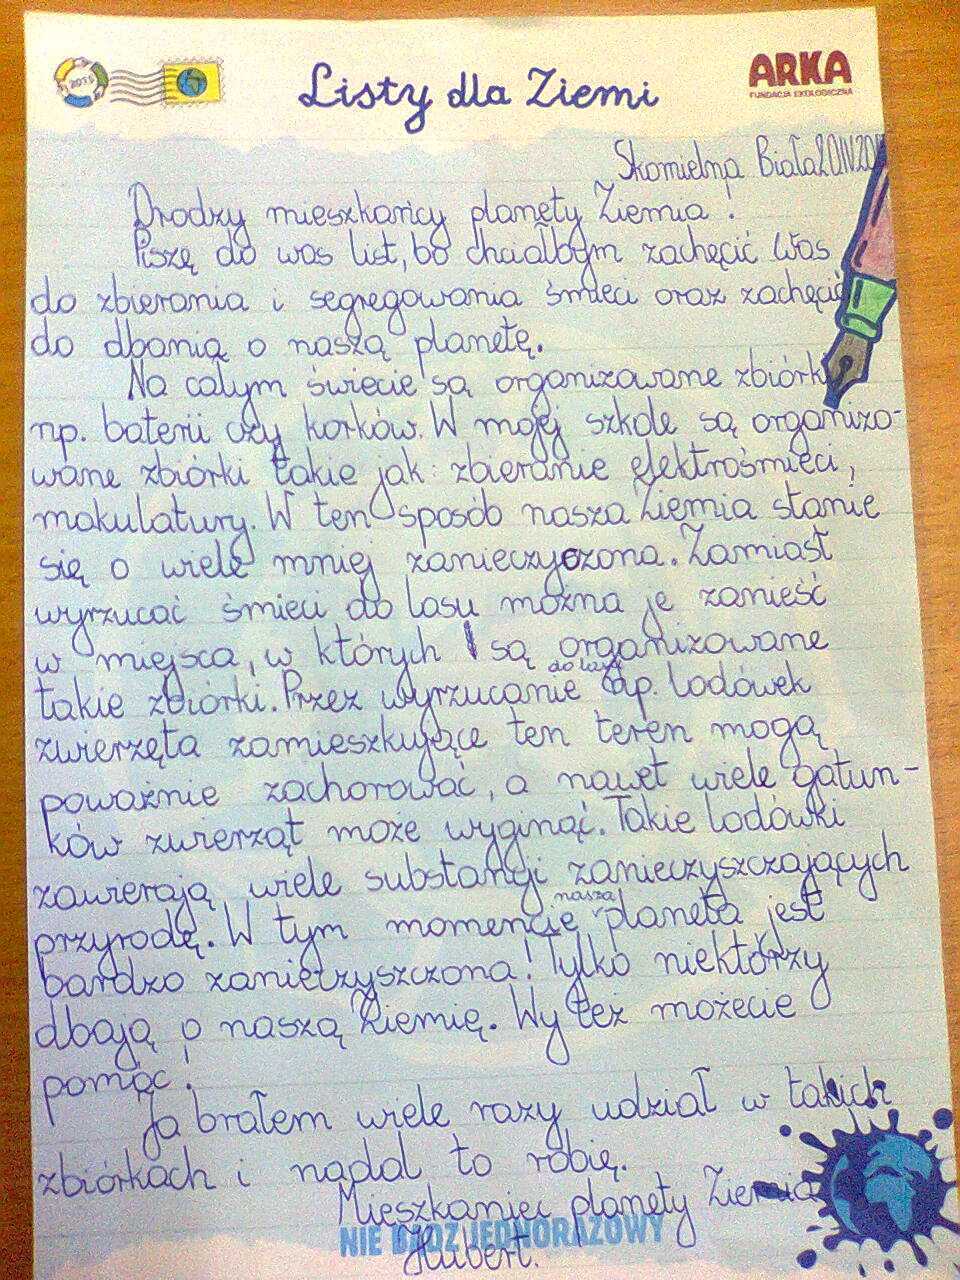 Listy dla Ziemi
ARKA
FUNDACJA EKOLOGICZNA
Skomielna Biała 20 IV 20
Drodzy mieszkańcy planety Ziemia!
Piszę do was list, bo chciałbym zachęcić Was
do zbierania i segregowania śmieci oraz zachęcić
do dbania o naszą planetę.
Na całym świecie są organizowane zbiórk
np. baterii czy korków. W mojej szkole są organizo-
wane zbiórki takie jak: zbieranie elektrośmieci,
makulatury. W ten sposób nasza Ziemia stanie
się o wiele mniej zanieczyczona. Zamiast
wyrzucać śmieci do lasu można je zanieść
w miejsca, w których są organizowane
takie zbiórki. Przez wyrzucanie do lasu np. lodówek
zwierzęta zamieszkujące ten teren mogą
poważnie zachorować, a nawet wiele gatun-
ków zwierząt może wyginąć. Takie lodówki
zawierają wiele substancji zanieczyszczających
przyrodę. W tym momencie nasza planeta jest
bardzo zanieczyszczona! Tylko niektórzy
dbają o naszą Ziemię. Wy też możecie
pomóc!
Ja brałem wiele razy udział w takich
zbiórkach i nadal to robię.
Mieszkaniec planety Ziemia
NIE BĄDŹ JEDNORAZOWY
Hubert.